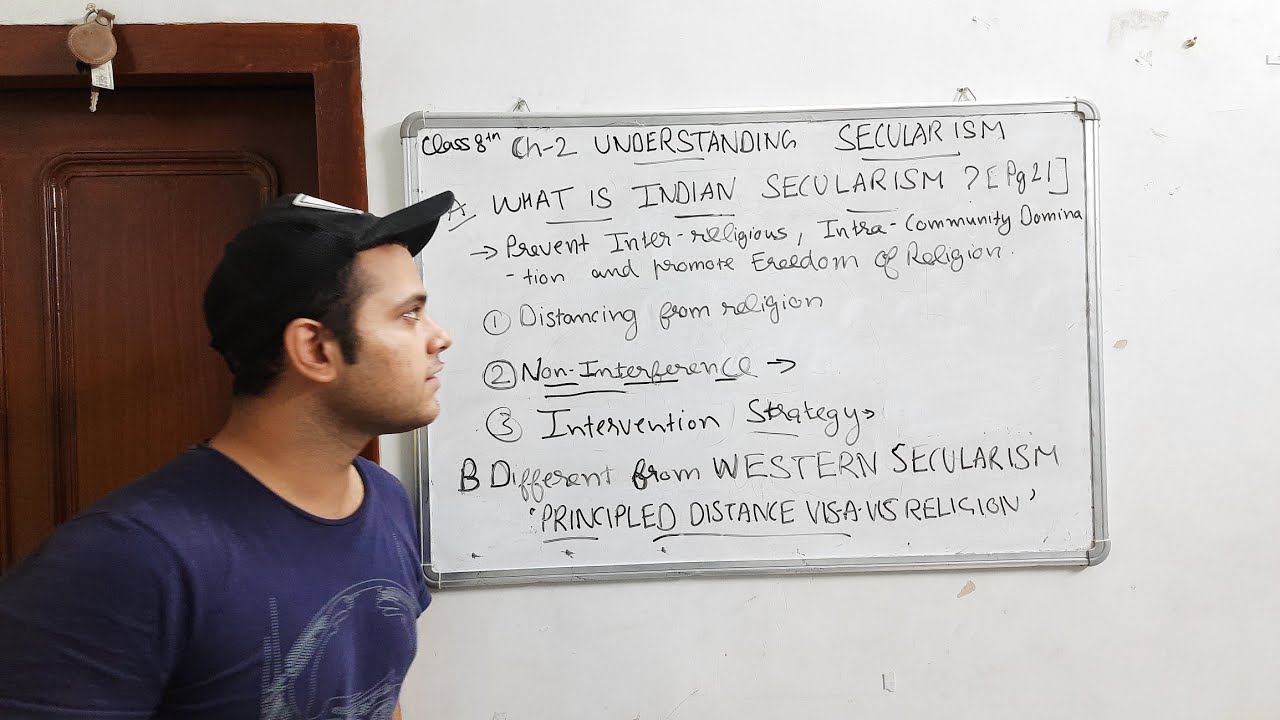 Class 8th Ch-2 UNDERSTANDING SECULARISM
A WHAT IS INDIAN SECULARISM ? [Pg 21]
→ Prevent Inter-religious, Intra-Community Domina
-tion and promote Freedom of Religion.
① Distancing from religion
② Non-Interference →
③ Intervention Strategy→
B Different from WESTERN SECULARISM
'PRINCIPLED DISTANCE VIS-A-VIS RELIGION'